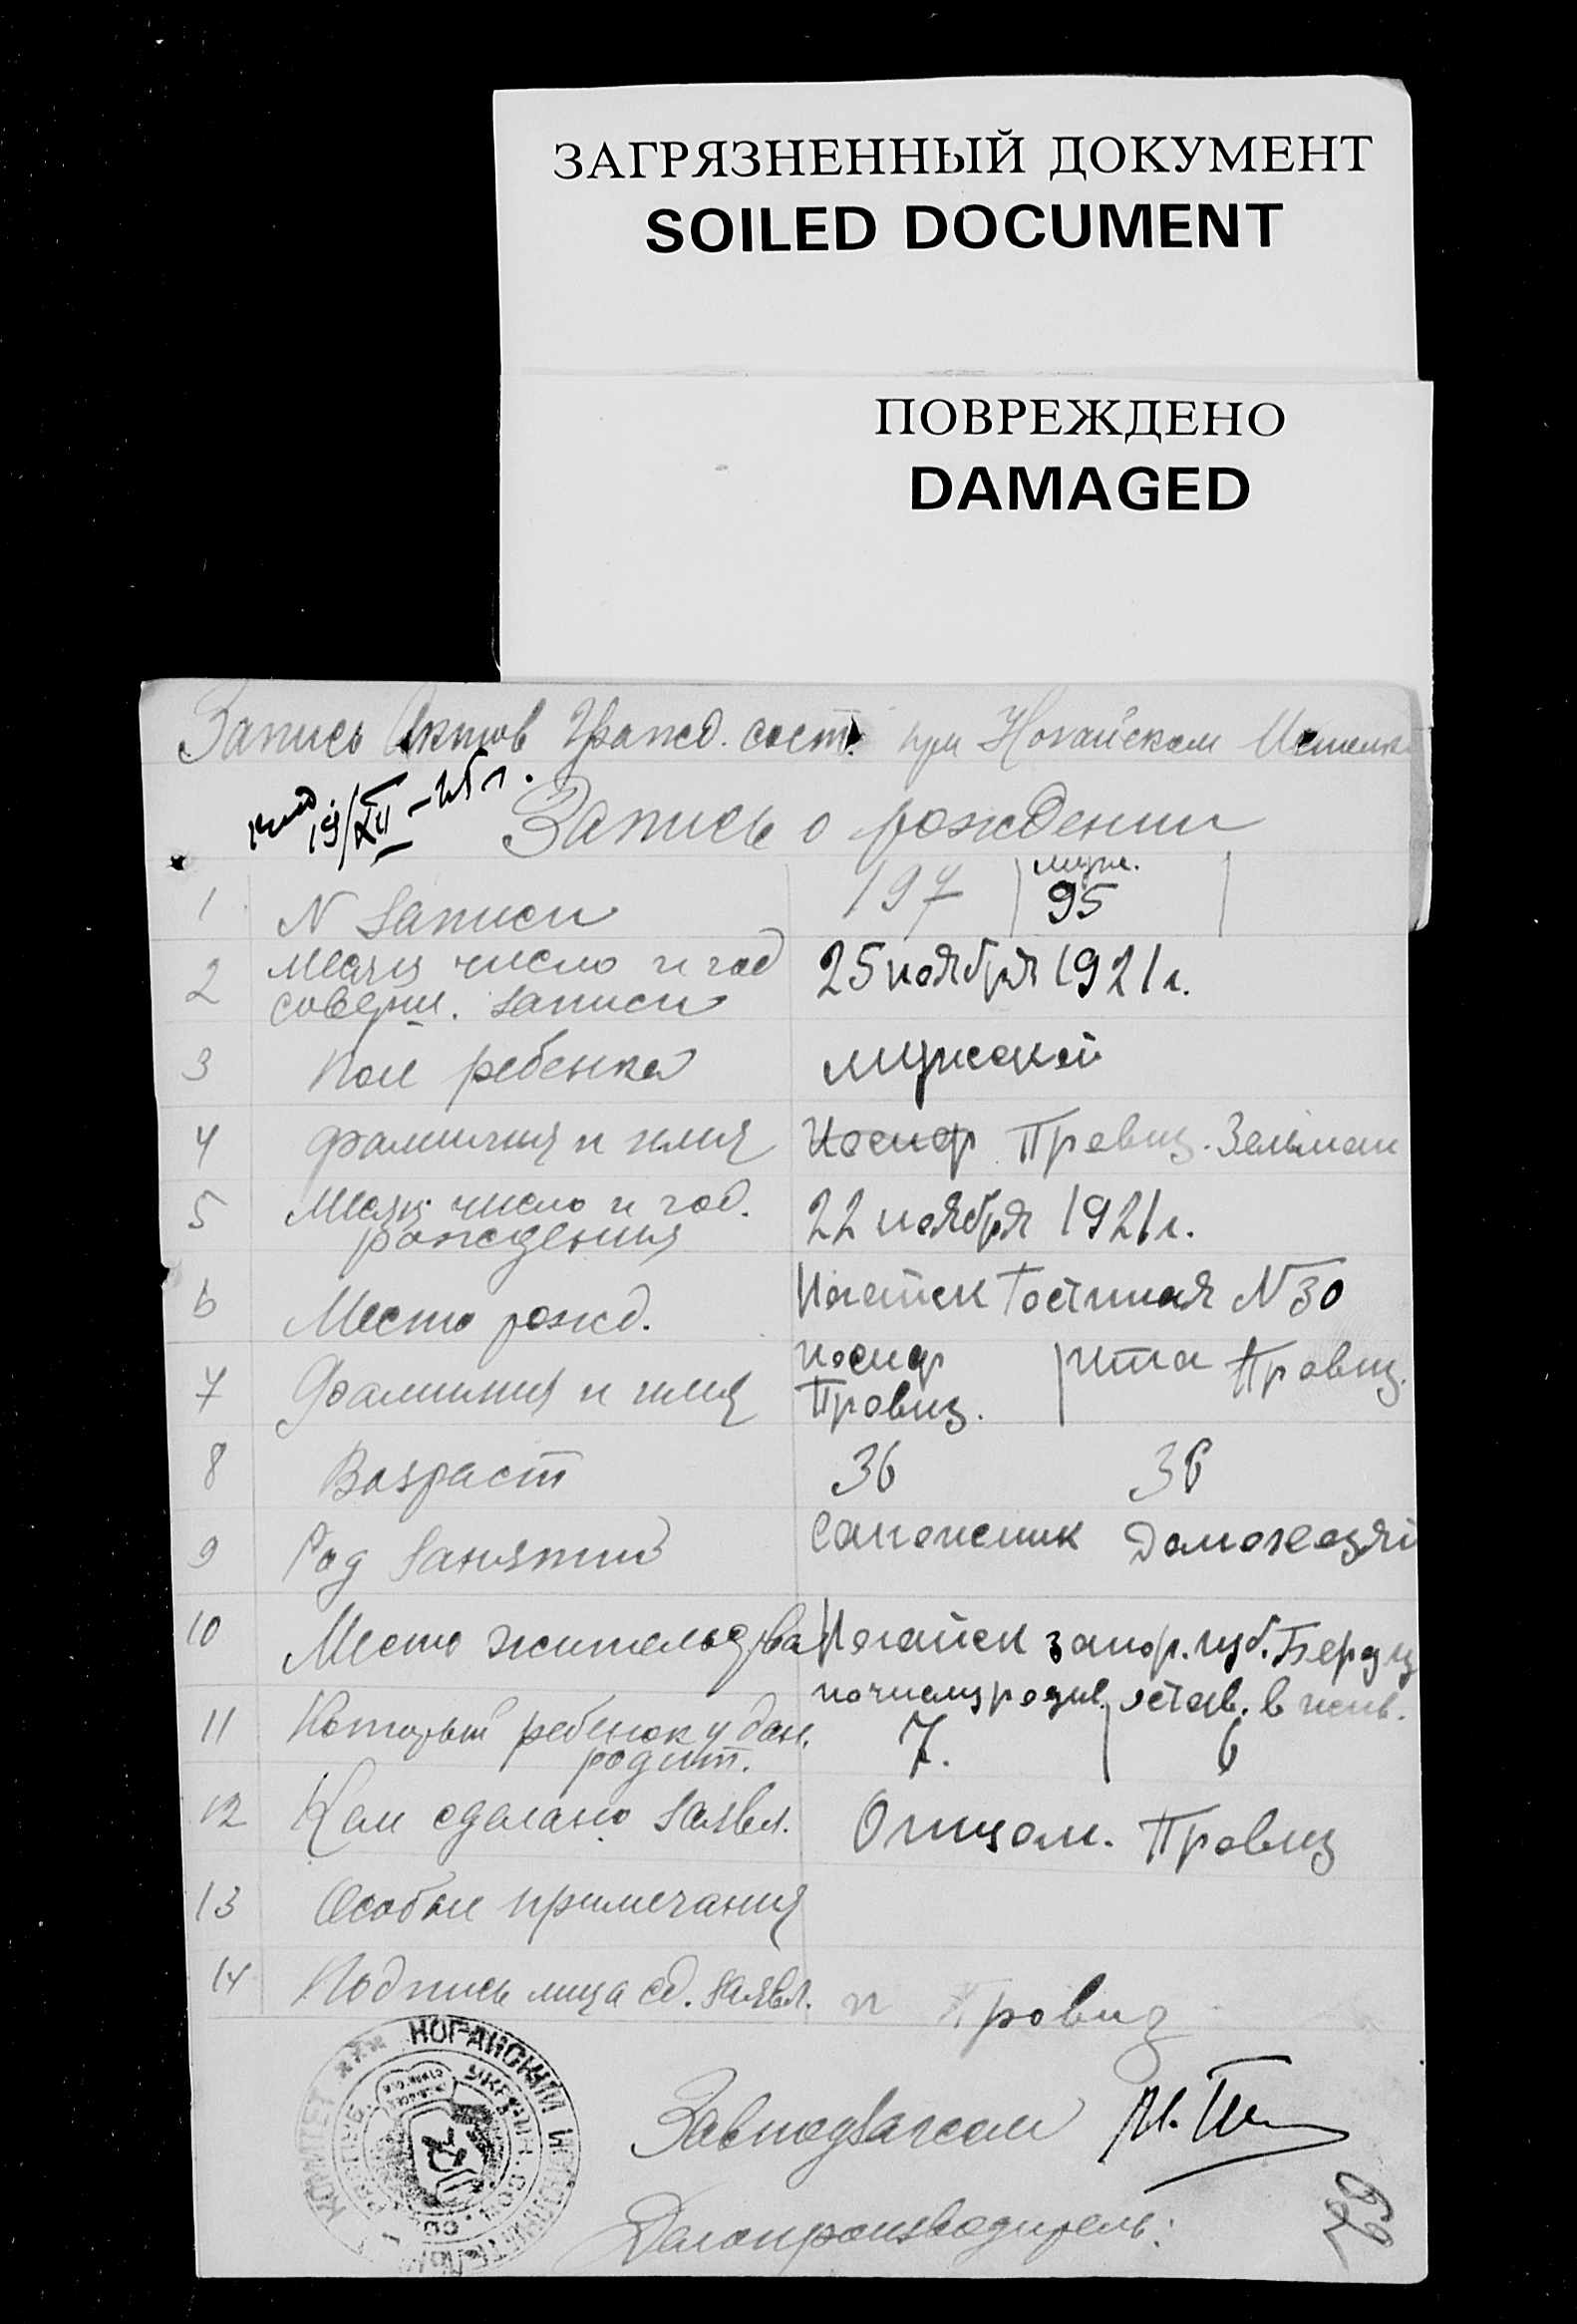 ЗАГРЯЗНЕННЫЙ ДОКУМЕНТ
SOILED DOCUMENT
ПОВРЕЖДЕНО
DAMAGED
Запись Актов Гражд. сост. при Ногайском
19/XII – 25 г.
Запись о рождении
муж.
1 N записи 197 95
2 Месяц число и год 25 ноября 1921 г.
соверш. записи
3 Пол ребенка мужской
4 Фамилия и имя Иосиф Провиз. Зельман
5 Месяц число и год. 22 ноября 1921 г.
рождения
6 Место рожд. Ногайск Гостиная N 30
7 Фамилия и имя Иосиф Рита Провиз.
Провиз.
8 Возраст 36 36
9 Род занятий Сапожник Домохозяй
10 Место жительства Ногайск запор. губ. Берд у
по числу родив. остав. в жив.
11 Который ребенок у дан. 7. 6
родит.
12 Кем сделано заявл. Отцом. Провиз
13 Особые примечания
14 Подпись лица сд. заявл. и Провиз
НОГАЙСКИЙ ИСПОЛНИТЕЛЬНЫЙ КОМИТЕТ
Завподзагсом
Делопроизводитель: